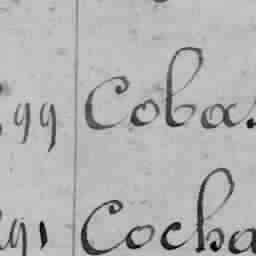 99 Cobas.
91 Cocha